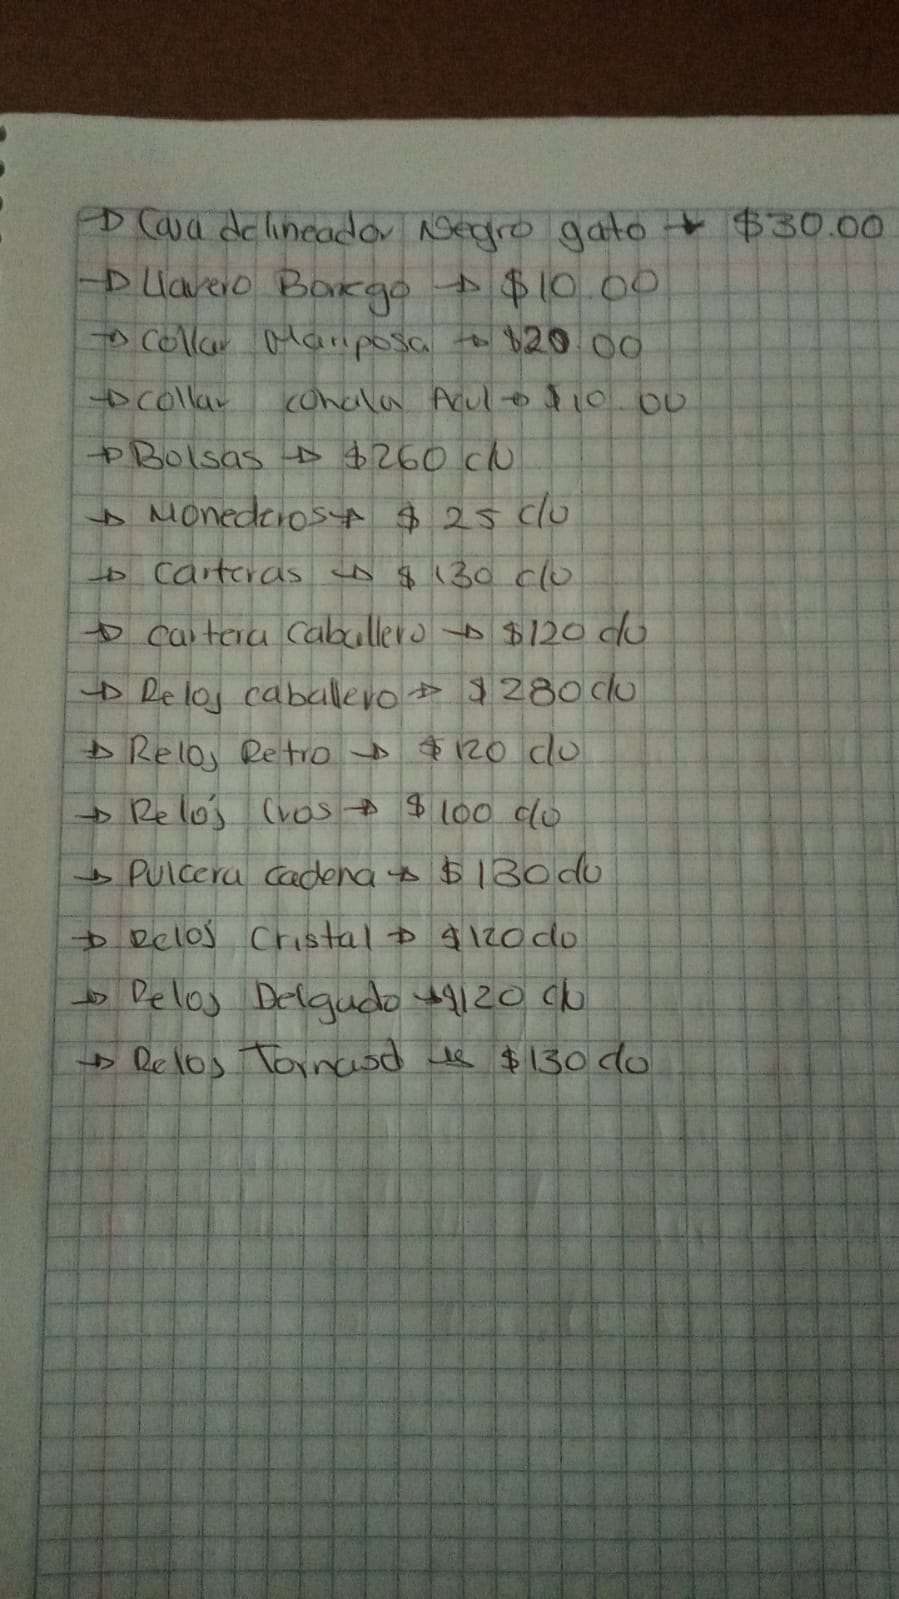 → Caja delineador Negro gato → $30.00
→ Llavero Borrego → $10.00
→ Collar Mariposa → $20.00
→ collar Azul → $10.00
→ Bolsas → $260 c/u
→ Monederos → $ 25 c/u
→ Carteras → $ 130 c/u
→ Cartera Caballero → $120 c/u
→ Reloj caballero → $280 c/u
→ Reloj Retro → $120 c/u
→ Relój → $100 c/u
→ Pulcera Cadena → $130 c/u
→ Relój Cristal → $120 c/u
→ Reloj Delgado → $120 c/u
→ Reloj Tornasol → $130 c/u